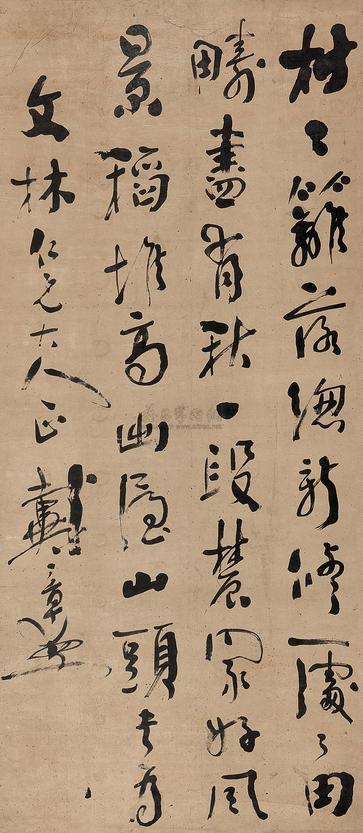 村〻籬落總新修處〻田
疇盡有秋一段農家好風
景稻堆高出屋山頭書為
文林仁兄大人正戴